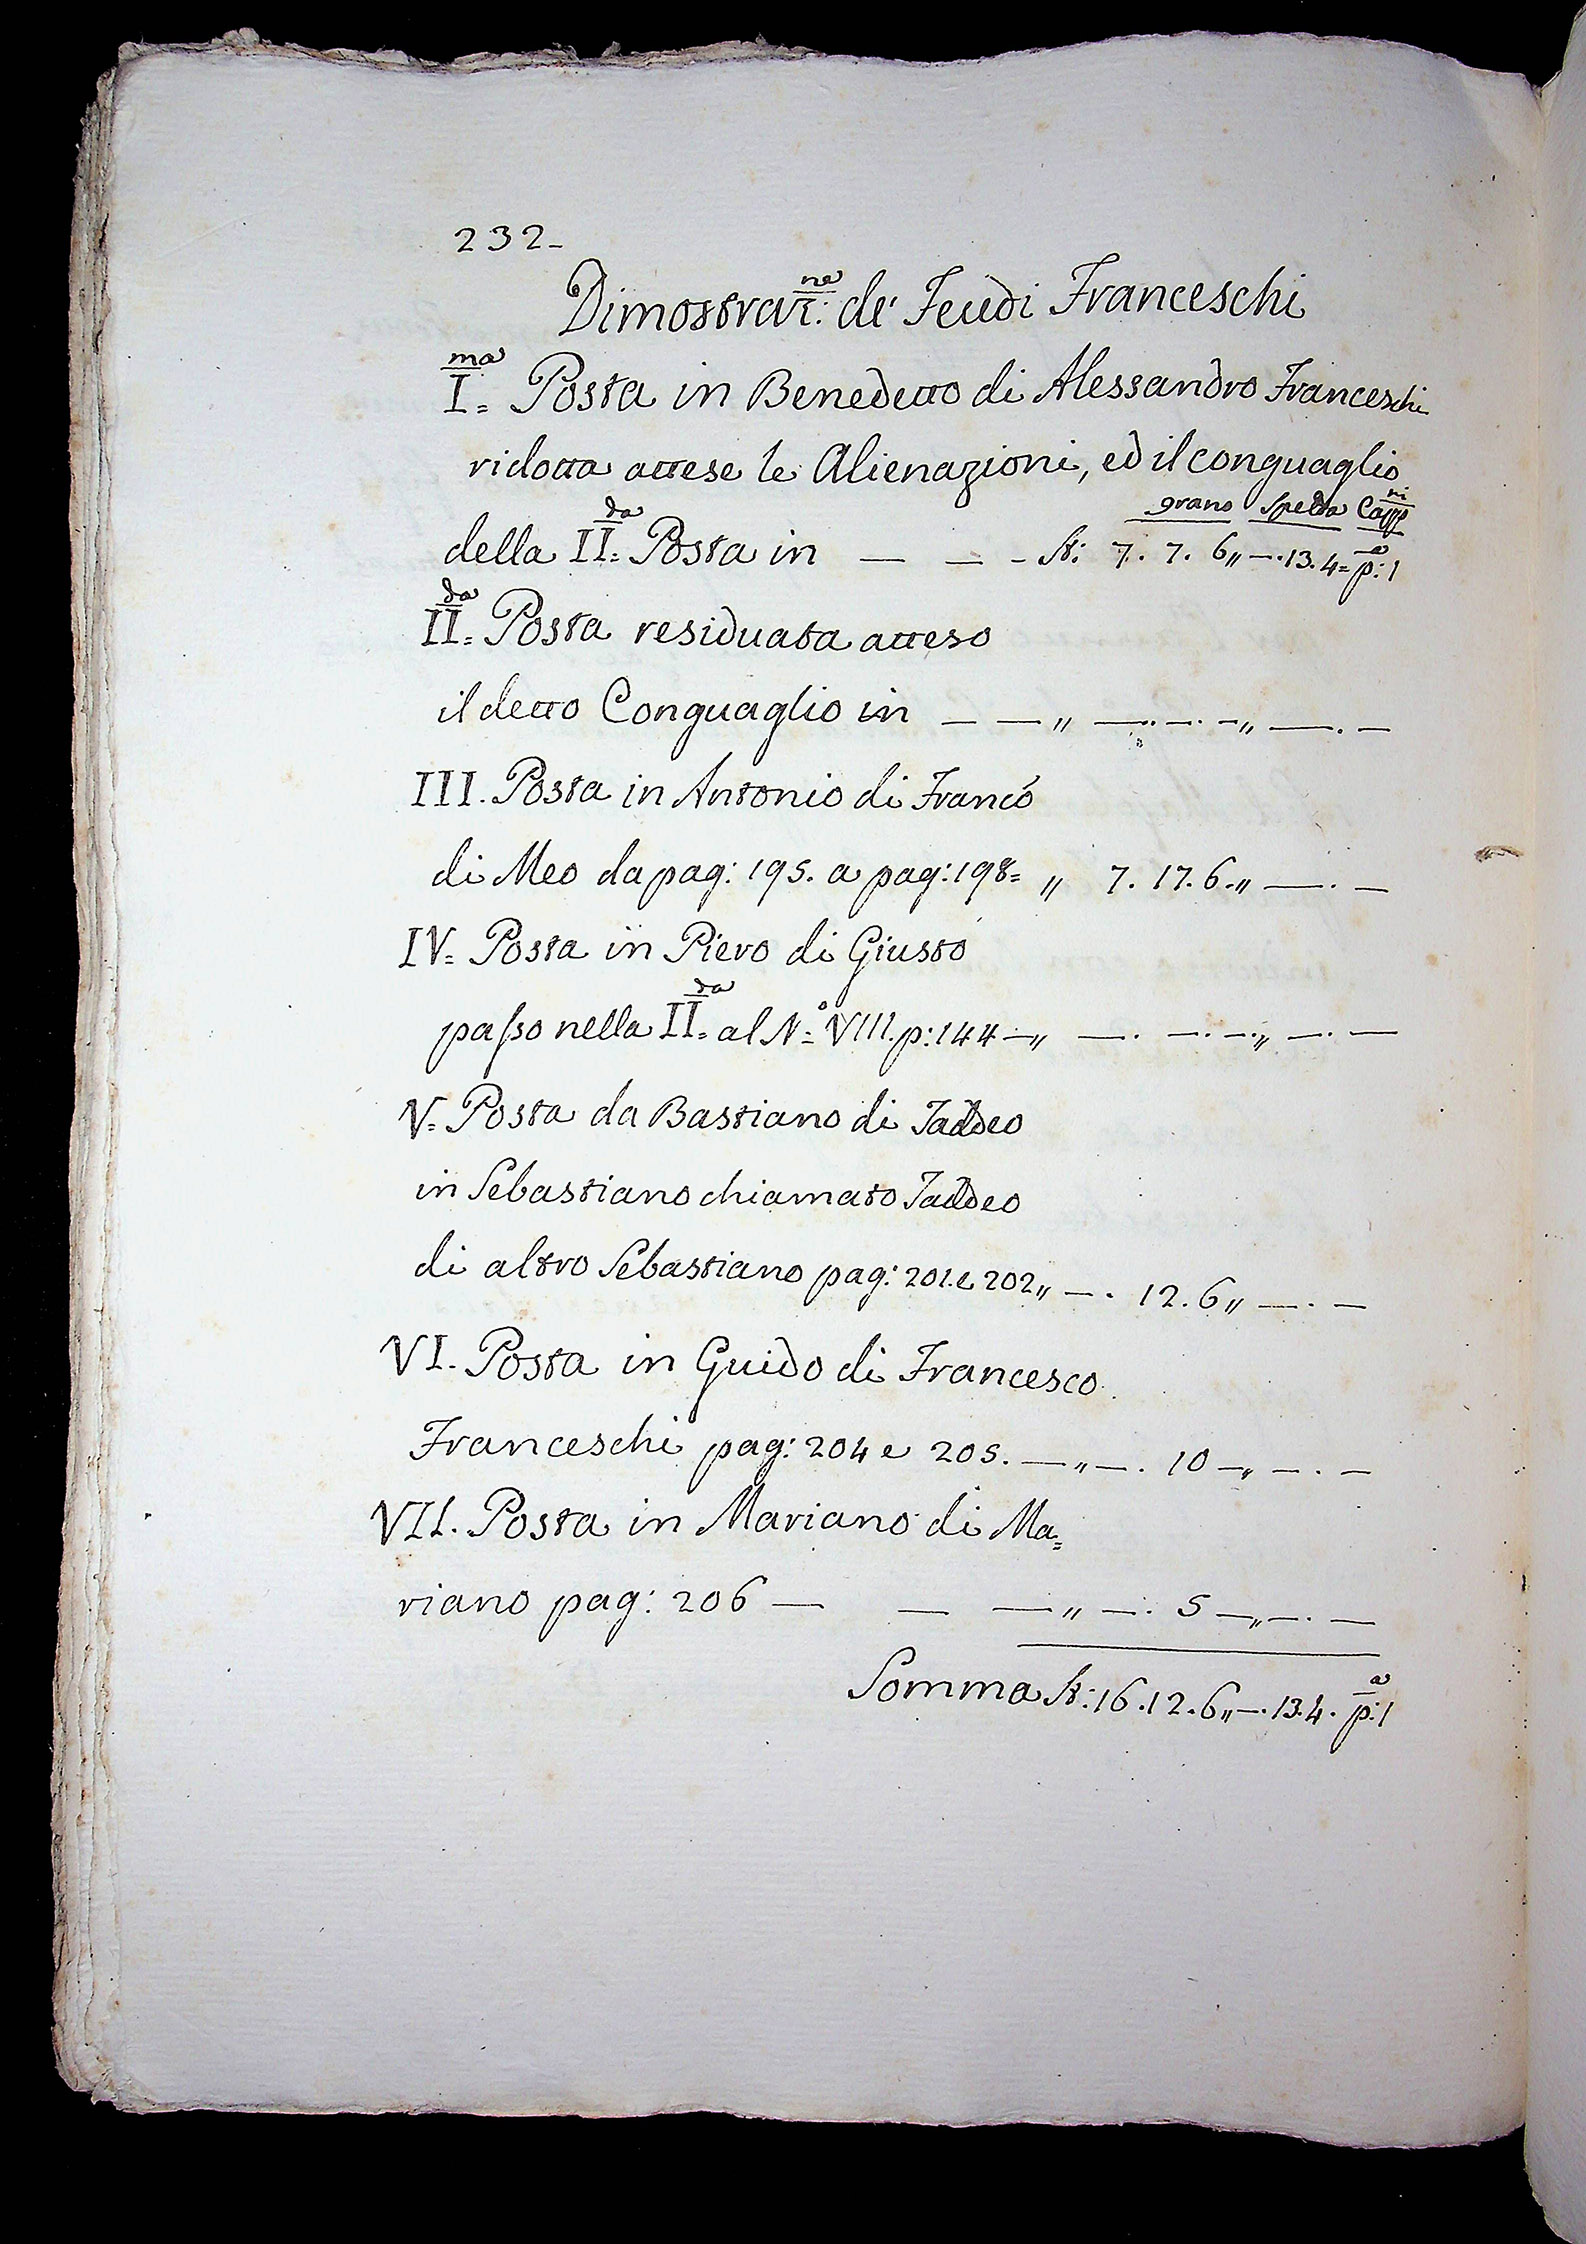 232-
Dimostraz:ne de' Feudi Franceschi
Ima= Posta in Benedetto di Alessandro Franceschi
ridotta attese le Alienazioni, ed il conguaglio
grano Spelda Cappni
della IIda= Posta in — — - St: 7. 7. 6,, —. 13. 4= pa: 1
IIda= Posta residuata atteso
il detto Conguaglio in — — ,, —. —. —,, —. —
III. Posta in Antonio di Franco
di Meo da pag: 195. a pag: 198= ,, 7. 17. 6.,, —. —
IV= Posta in Piero di Giusto
passo nella IIda= al No= VIII. p: 144 —,, —. —. —.,, —. —
V= Posta da Bastiano di Taddeo
in Sebastiano chiamato Taddeo
di altro Sebastiano pag: 201. e 202,, —. 12. 6,, —. —
VI. Posta in Guido di Francesco
Franceschi pag: 204 e 205. —,, —. 10 —,, —. —
VII. Posta in Mariano di Ma=
riano pag: 206 — — —,, —. 5 —,, —. —
Somma St: 16. 12. 6,, —. 13. 4. pa: 1